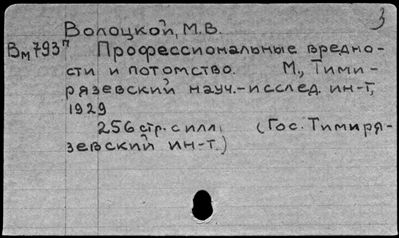 3
Волоцкой, М.В.
Вм793⁷ Профессиональные вредно-
сти и потомство. М., Тими-
рязевский науч.-исслед. ин-т,
1929
256 стр. с илл. (Гос. Тимиря-
зевский ин-т.)